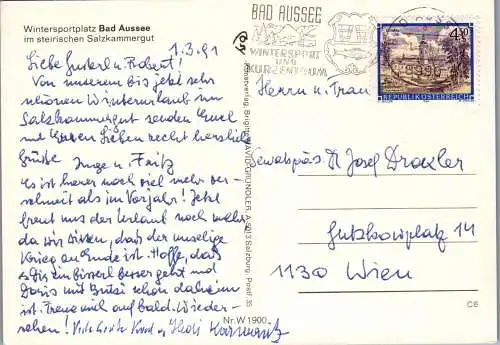 Wintersportplatz Bad Aussee
im steirischen Salzkammergut
1.3.91
Liebe Gusterl u. Robert!
Von unserem bis jetzt sehr
schönen Winterurlaub im
Salzkammergut senden Euch
mit lieben recht herzliche
Grüße Inge u. Fritz
Es ist heuer noch viel mehr ver-
schneit als im Vorjahr! Jetzt
freut uns der Urlaub noch mehr
da wir wissen, daß der unselige
Krieg zu Ende ist. Hoffe, daß
es Dir ein bisserl besser geht und
Doris mit schon daheim
ist. Freue mich auf bald. Wieder-
sehen!
Kunstverlag Brigitte DAVID-GRÜNDLER A-5013 Salzburg, Postf. 35
Nr. W 1900
BAD AUSSEE
WINTERSPORT
UND
KURZENTRUM
4,50
REPUBLIK ÖSTERREICH
Herrn u. Frau
Josef Draxler
Gutzkowplatz 14
1130 Wien
C6